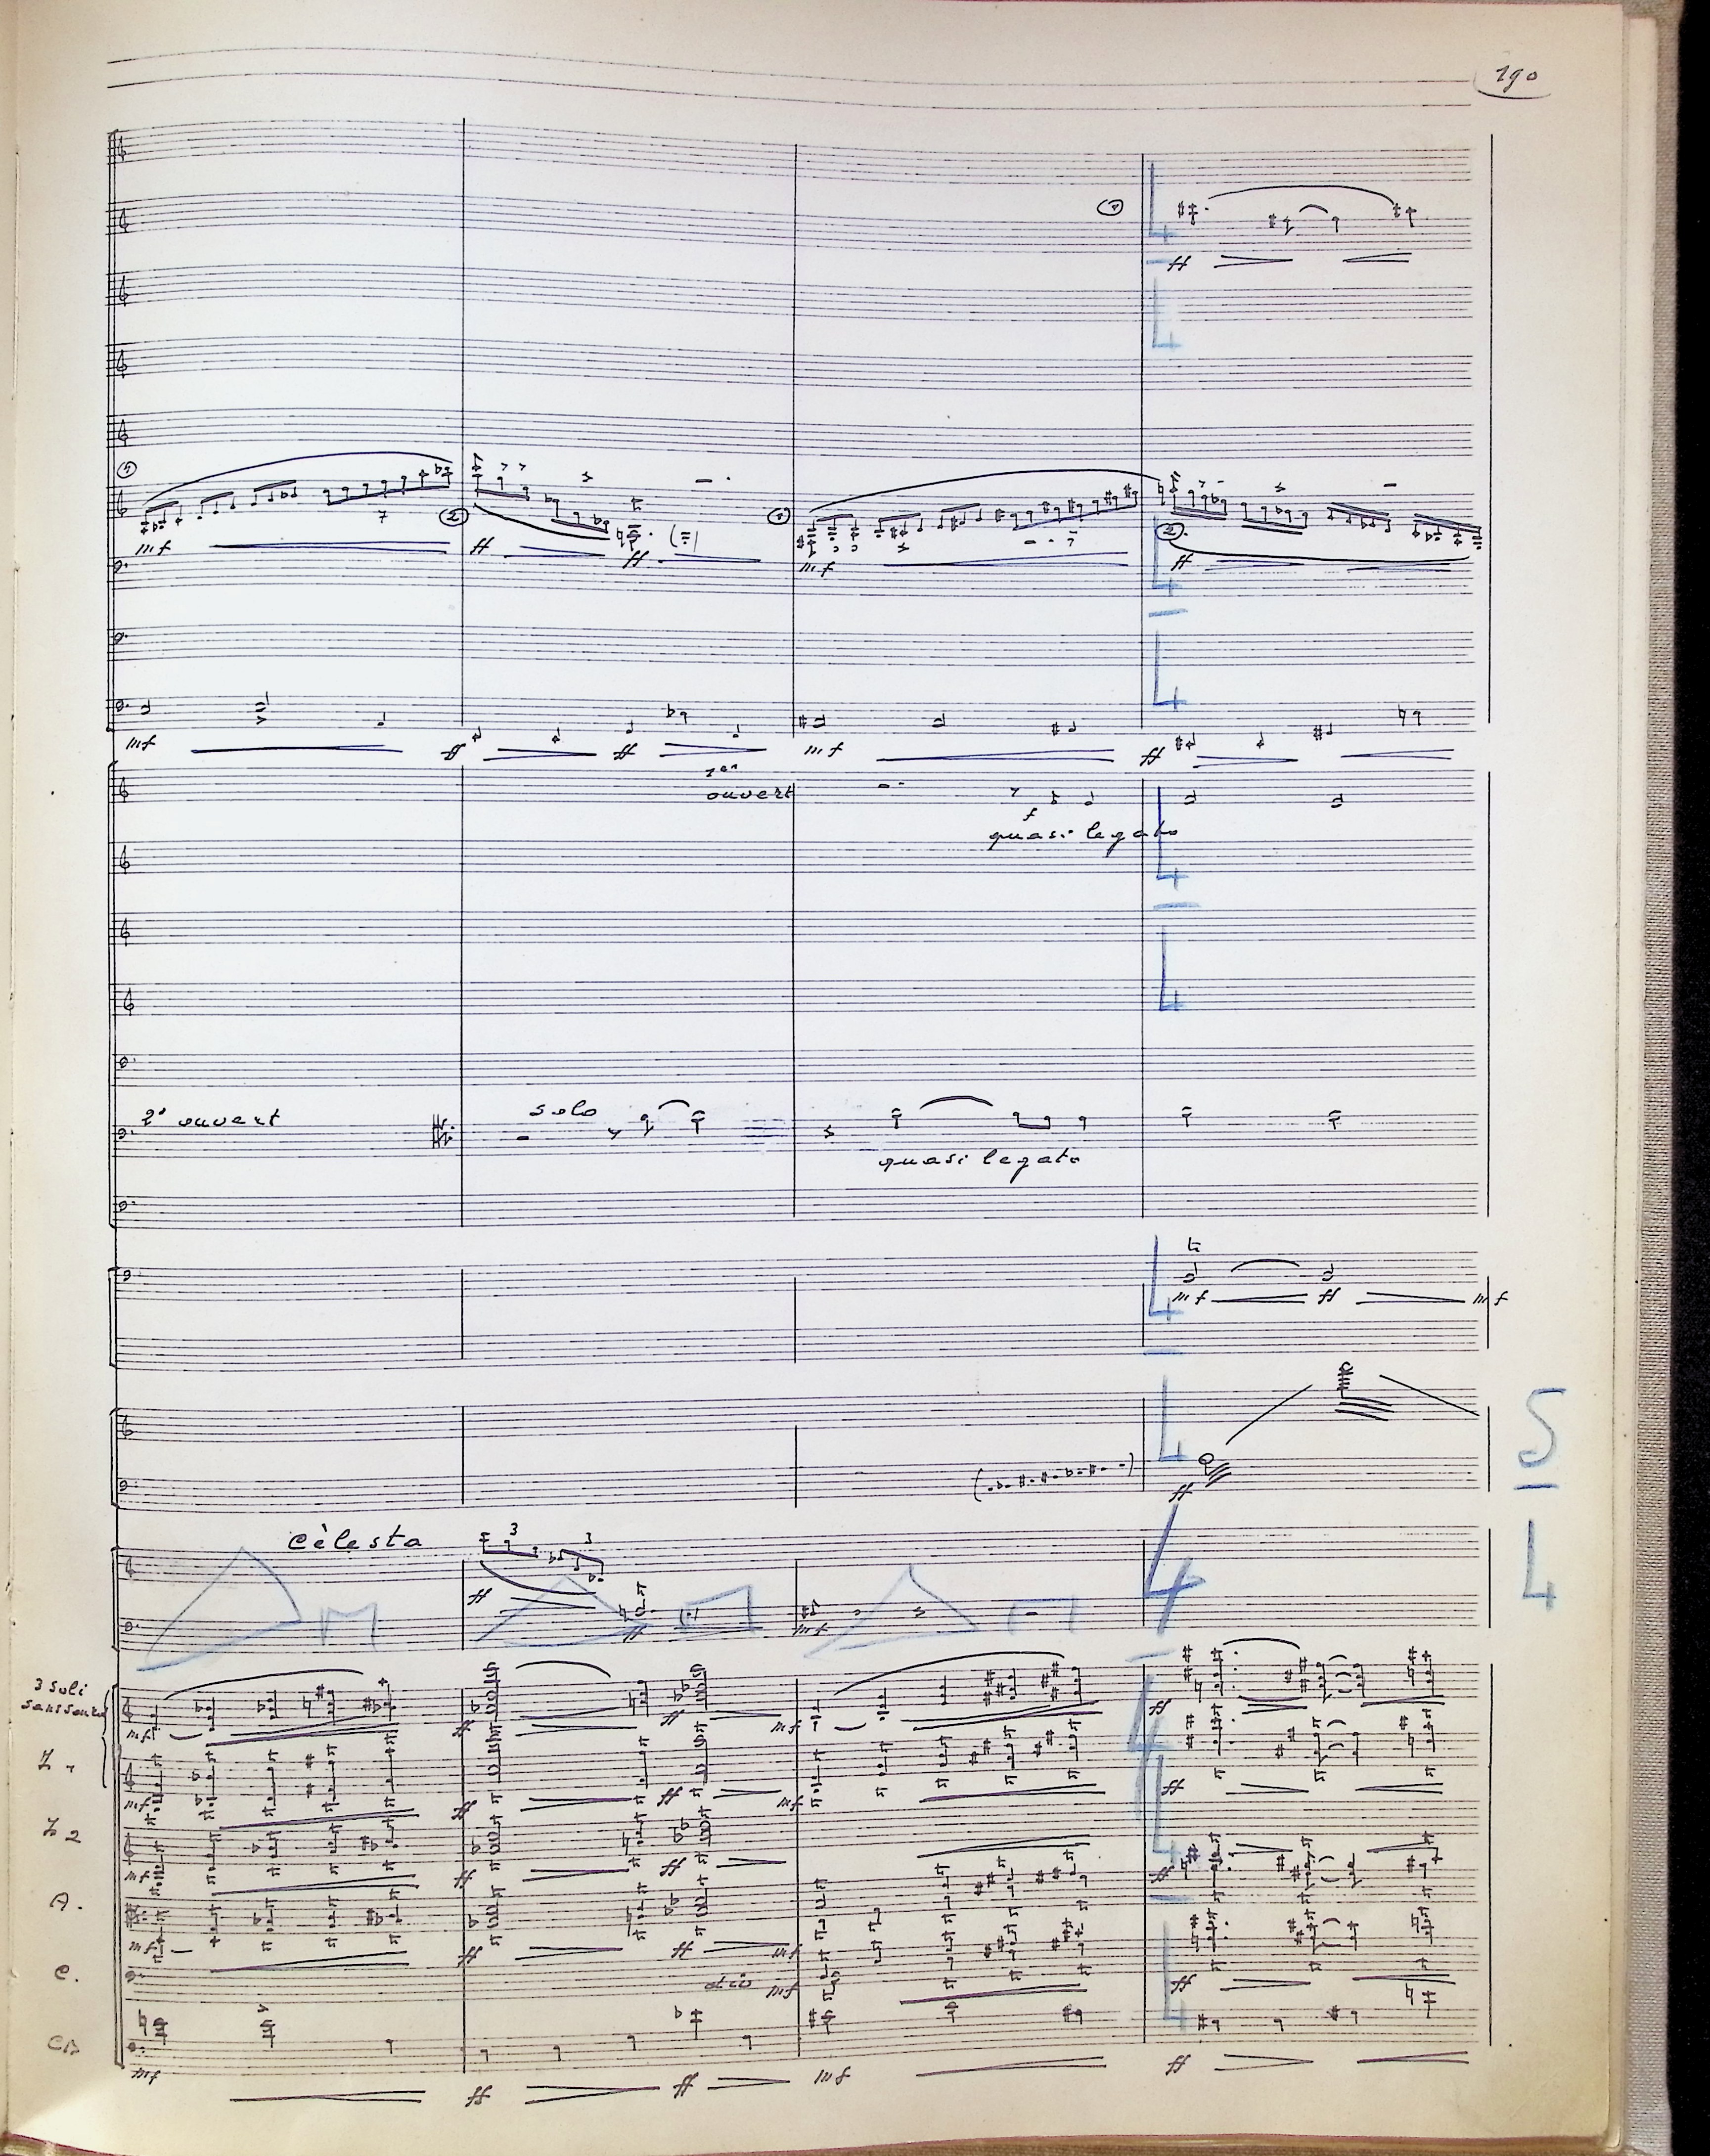 190
1
1 2 1 2
mf ff ff mf ff
mf ff ff mf ff
ff
1er
ouvert
f
quasi legato
2º ouvert solo
quasi legato
tr
mf ff mf
ff
5
4
Cèlesta 3 3
4
ff
ff mf
3 soli
mf ff ff mf ff
mf ff ff mf ff
2
mf ff ff ff
A.
mf ff ff mf ff
C.
div mf
CB
mf ff ff mf ff